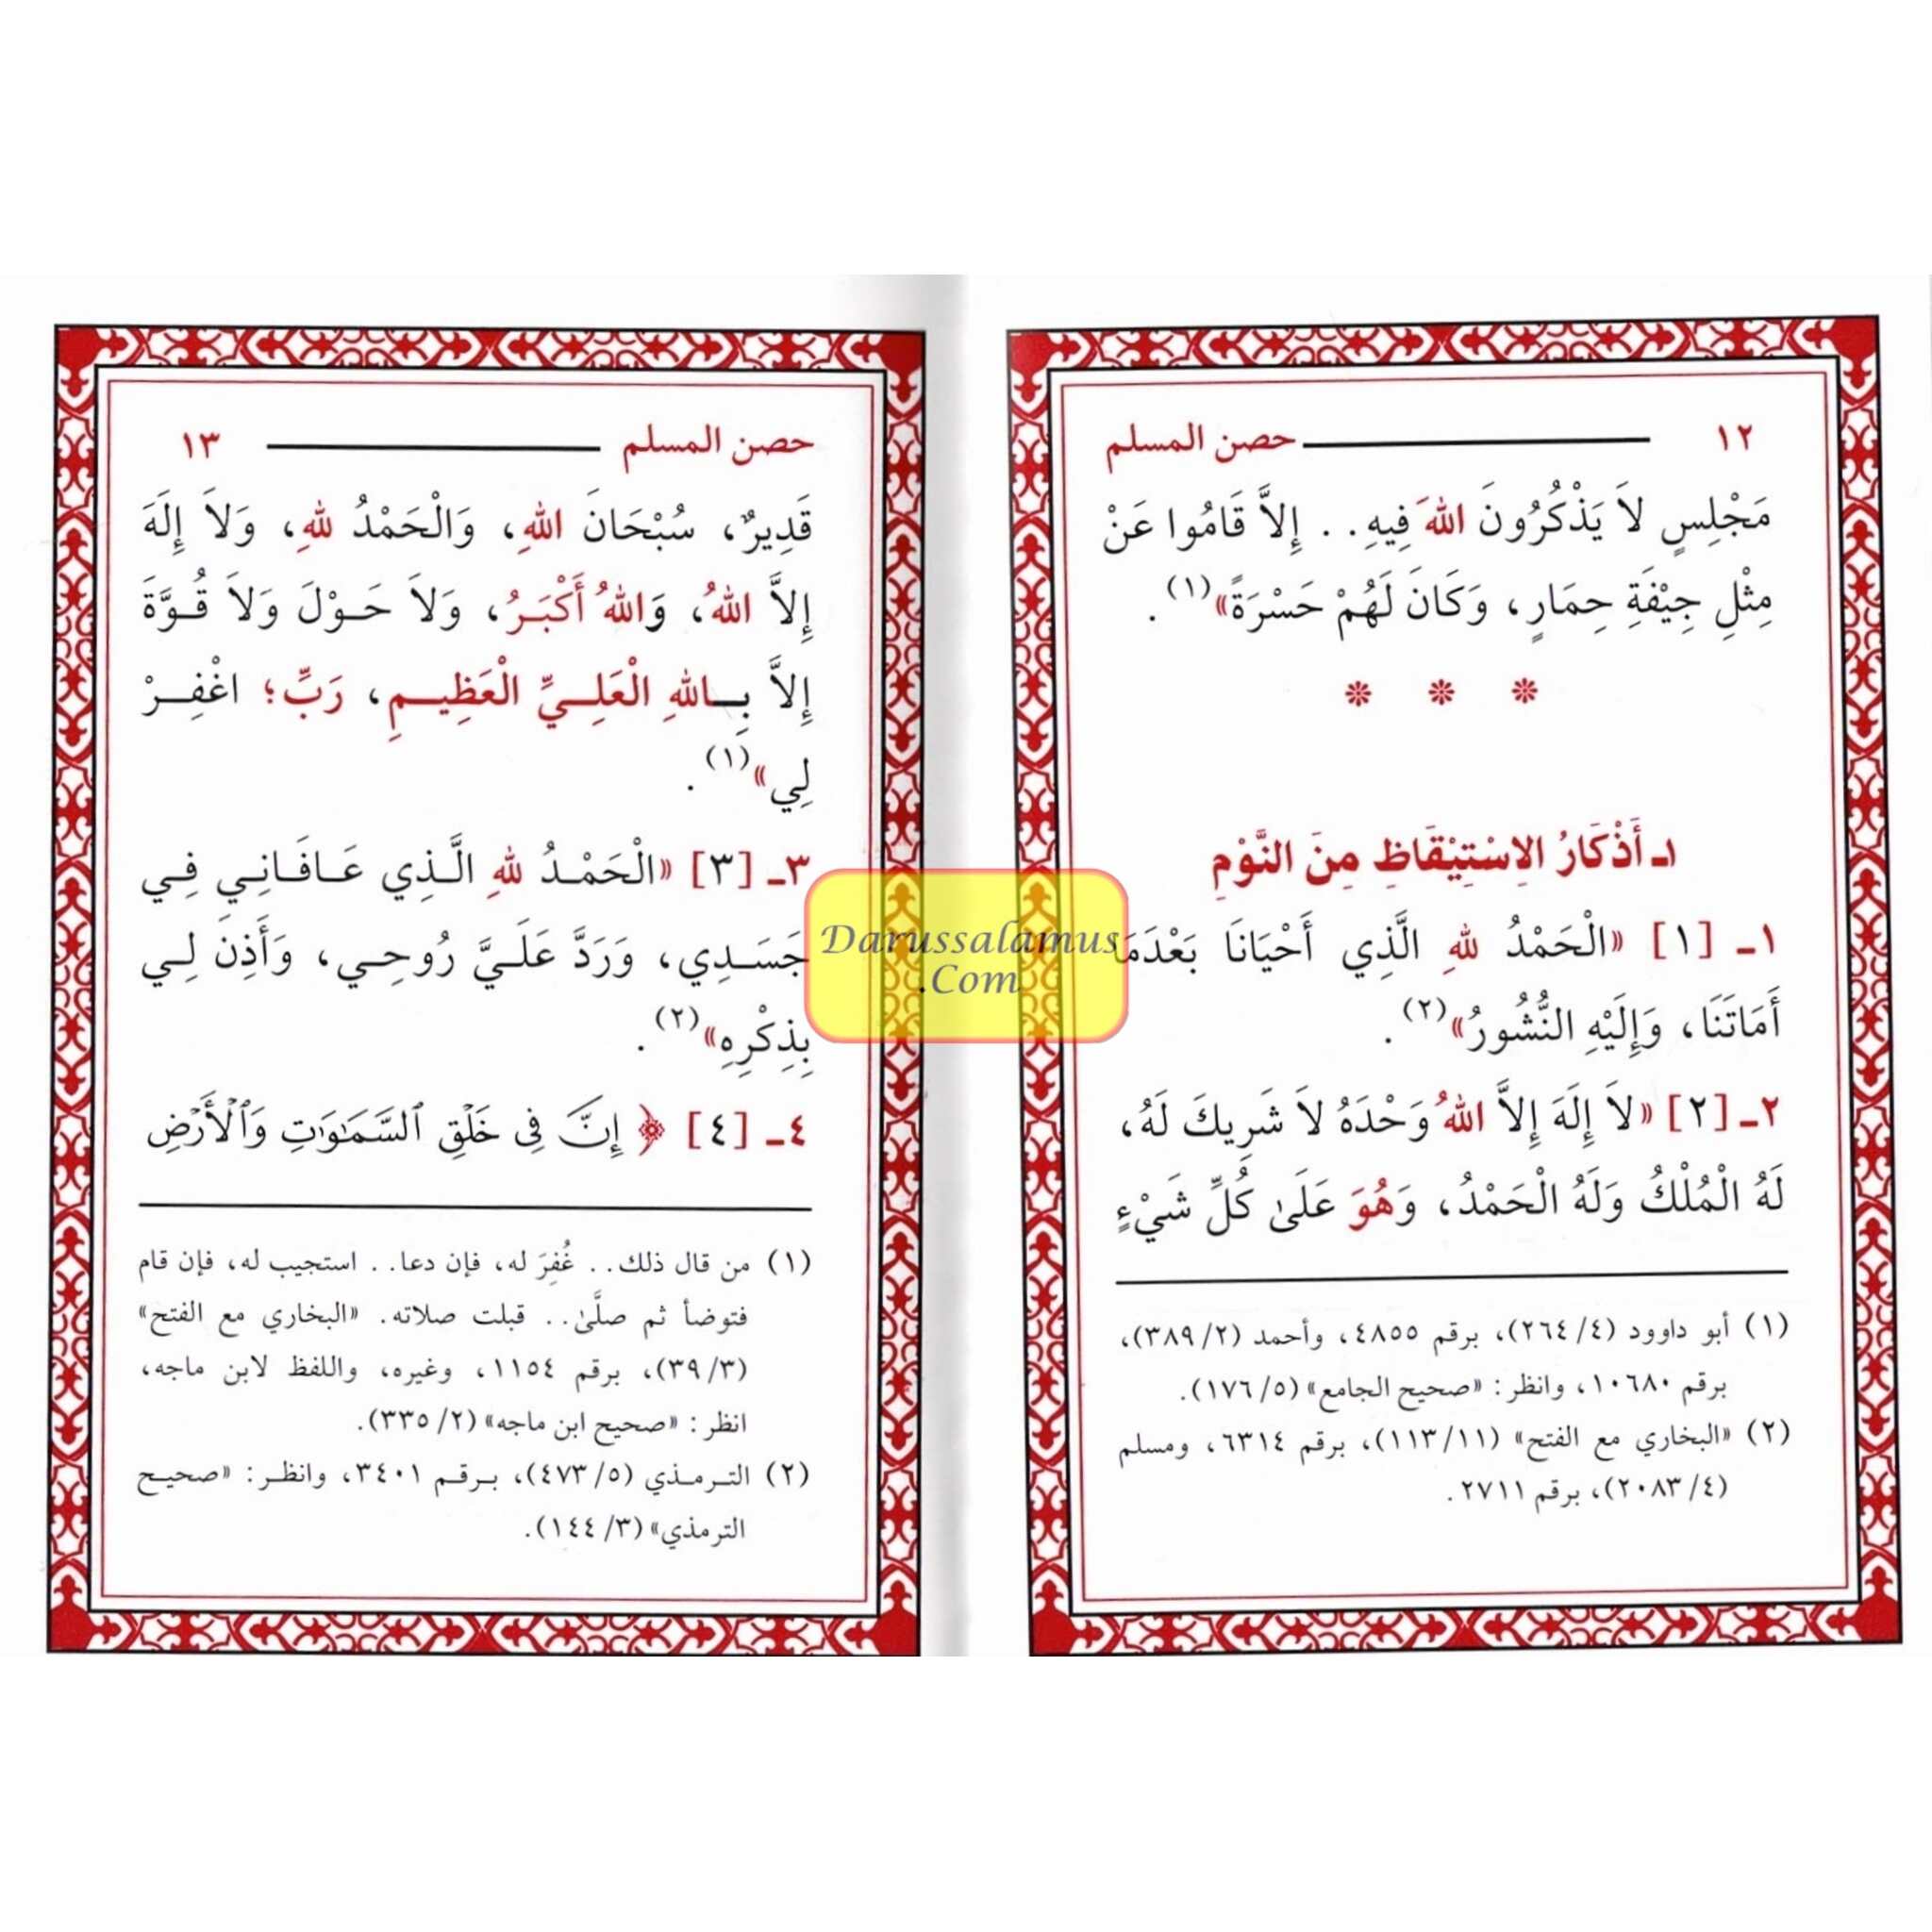 ١٢ حصن المسلم
مَجْلِسٍ لاَ يَذْكُرُونَ اللهَ فِيهِ.. إِلاَّ قَامُوا عَنْ
مِثْلِ جِيْفَةِ حِمَارٍ، وَكَانَ لَهُمْ حَسْرَةً»(١).
* * *
١ـ أَذْكَارُ الِاسْتِيْقَاظِ مِنَ النَّوْمِ
١ـ [١] «الْحَمْدُ للهِ الَّذِي أَحْيَانَا بَعْدَمَا
أَمَاتَنَا، وَإِلَيْهِ النُّشُورُ»(٢).
٢ـ [٢] «لاَ إِلَهَ إِلاَّ اللهُ وَحْدَهُ لاَ شَرِيكَ لَهُ،
لَهُ الْمُلْكُ وَلَهُ الْحَمْدُ، وَهُوَ عَلَىٰ كُلِّ شَيْءٍ
(١) أبو داوود (٤/ ٢٦٤)، برقم ٤٨٥٥، وأحمد (٢/ ٣٨٩)،
برقم ١٠٦٨٠، وانظر: «صحيح الجامع» (٥/ ١٧٦).
(٢) «البخاري مع الفتح» (١١/ ١١٣)، برقم ٦٣١٤، ومسلم
(٤/ ٢٠٨٣)، برقم ٢٧١١.
حصن المسلم ١٣
قَدِيرٌ، سُبْحَانَ اللهِ، وَالْحَمْدُ للهِ، وَلاَ إِلَهَ
إِلاَّ اللهُ، وَاللهُ أَكْبَرُ، وَلاَ حَوْلَ وَلاَ قُوَّةَ
إِلاَّ بِاللهِ الْعَلِيِّ الْعَظِيمِ، رَبِّ؛ اغْفِرْ
لِي»(١).
٣ـ [٣] «الْحَمْدُ للهِ الَّذِي عَافَانِي فِي
جَسَدِي، وَرَدَّ عَلَيَّ رُوحِي، وَأَذِنَ لِي
بِذِكْرِهِ»(٢).
٤ـ [٤] ﴿إِنَّ فِي خَلْقِ ٱلسَّمَٰوَٰتِ وَٱلْأَرْضِ
(١) من قال ذلك.. غُفِرَ له، فإن دعا.. استجيب له، فإن قام
فتوضأ ثم صلَّىٰ.. قبلت صلاته. «البخاري مع الفتح»
(٣/ ٣٩)، برقم ١١٥٤، وغيره، واللفظ لابن ماجه،
انظر: «صحيح ابن ماجه» (٢/ ٣٣٥).
(٢) الترمذي (٥/ ٤٧٣)، برقم ٣٤٠١، وانظر: «صحيح
الترمذي» (٣/ ١٤٤).
Darussalamus
.Com